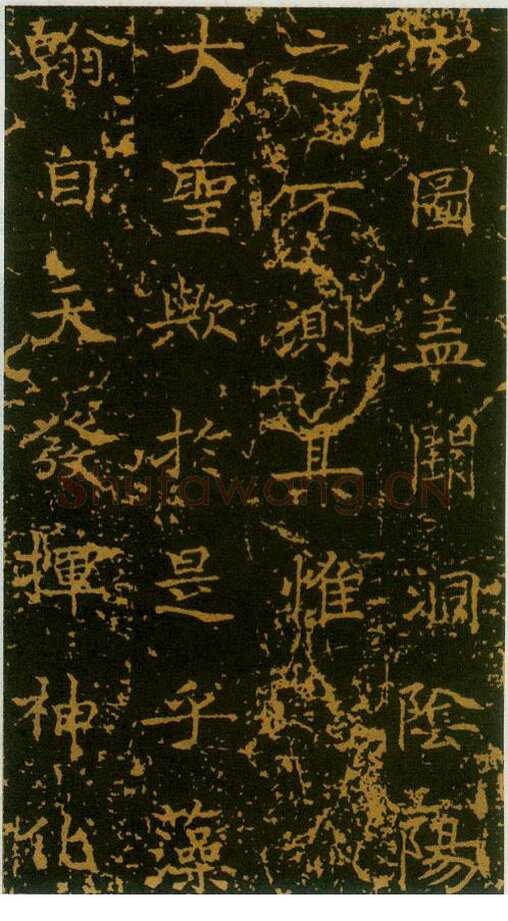 圖盖洞陰陽
之不測其惟
大聖歟於是乎藻
翰自天發揮神化
Shufawang.CN